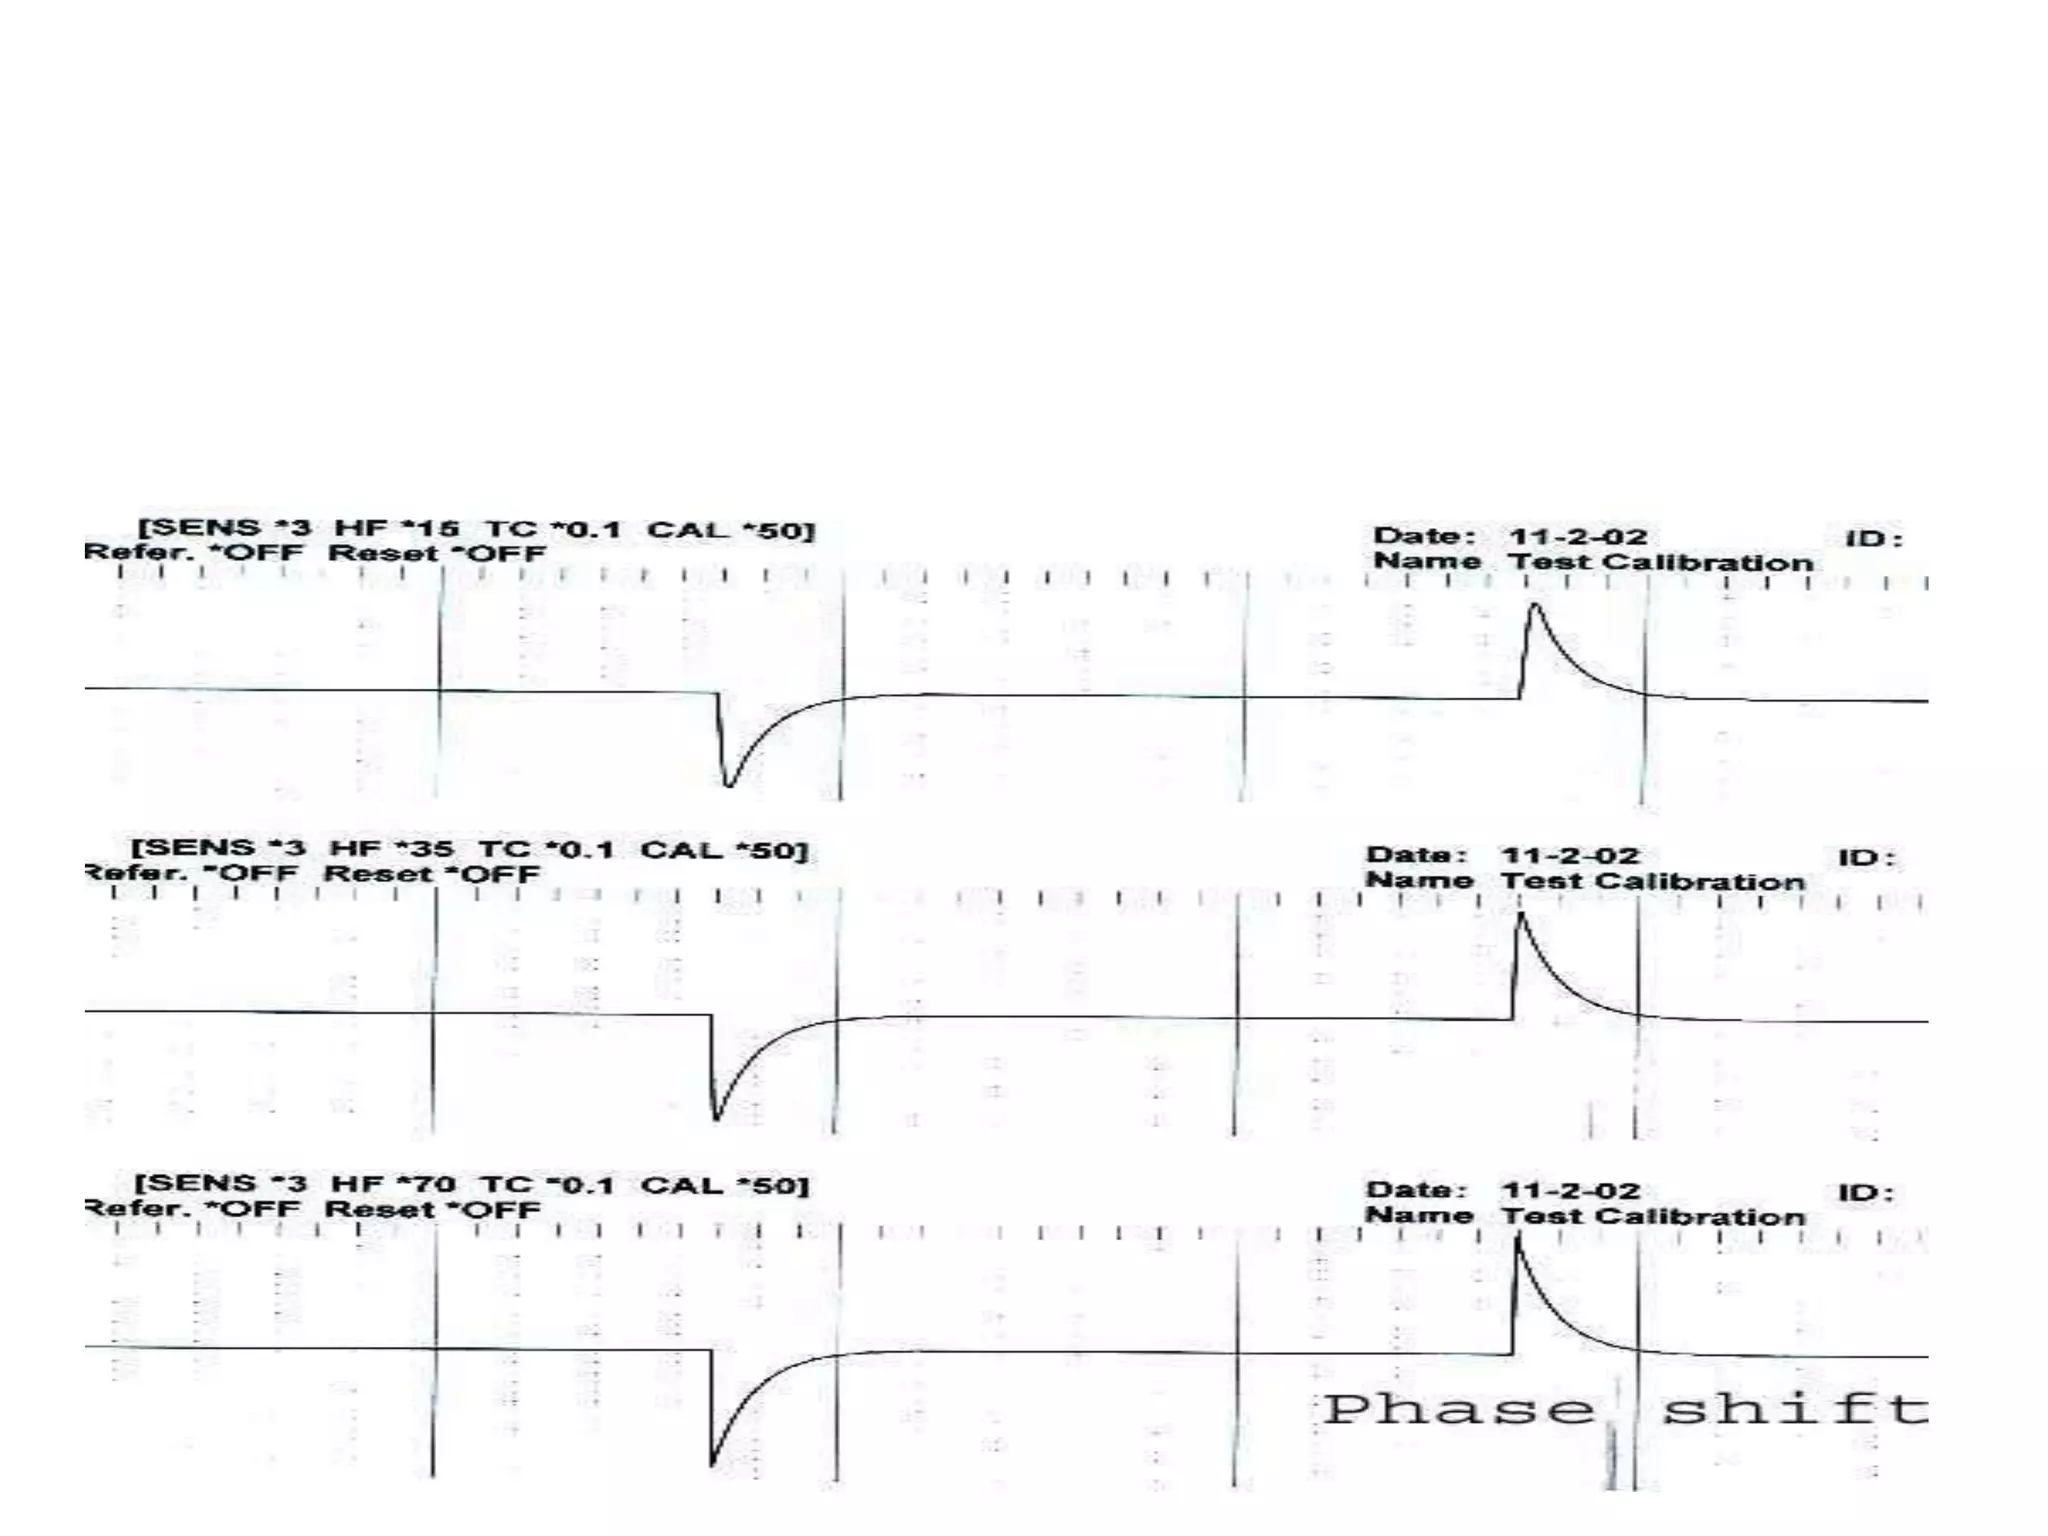 [SENS *3 HF *15 TC *0.1 CAL *50]
Refer. *OFF Reset *OFF
Date: 11-2-02 ID:
Name Test Calibration
[SENS *3 HF *35 TC *0.1 CAL *50]
Refer. *OFF Reset *OFF
Date: 11-2-02 ID:
Name Test Calibration
[SENS *3 HF *70 TC *0.1 CAL *50]
Refer. *OFF Reset *OFF
Date: 11-2-02 ID:
Name Test Calibration
Phase shift